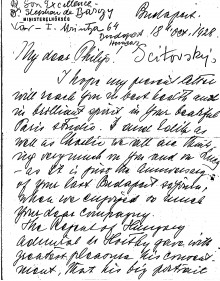 Son Excellence
Stephan de Bárczy
MINISTERELNÖKSÉG
Vár - I. 64
Budapest
18 1928.
My dear Philip!
I hope my letter
will reach you in best health and
in brilliant spirit in your beautiful
Paris studio. I and as
well as we all are think-
ing very much on you and on
- as it is just the Anniversary
of your last Budapest sojourn,
when we enjoyed so much
your dear company.
The Regent of Hungary
admiral de Horthy gave with
greatest pleasure his consent-
ment, that his big portrait